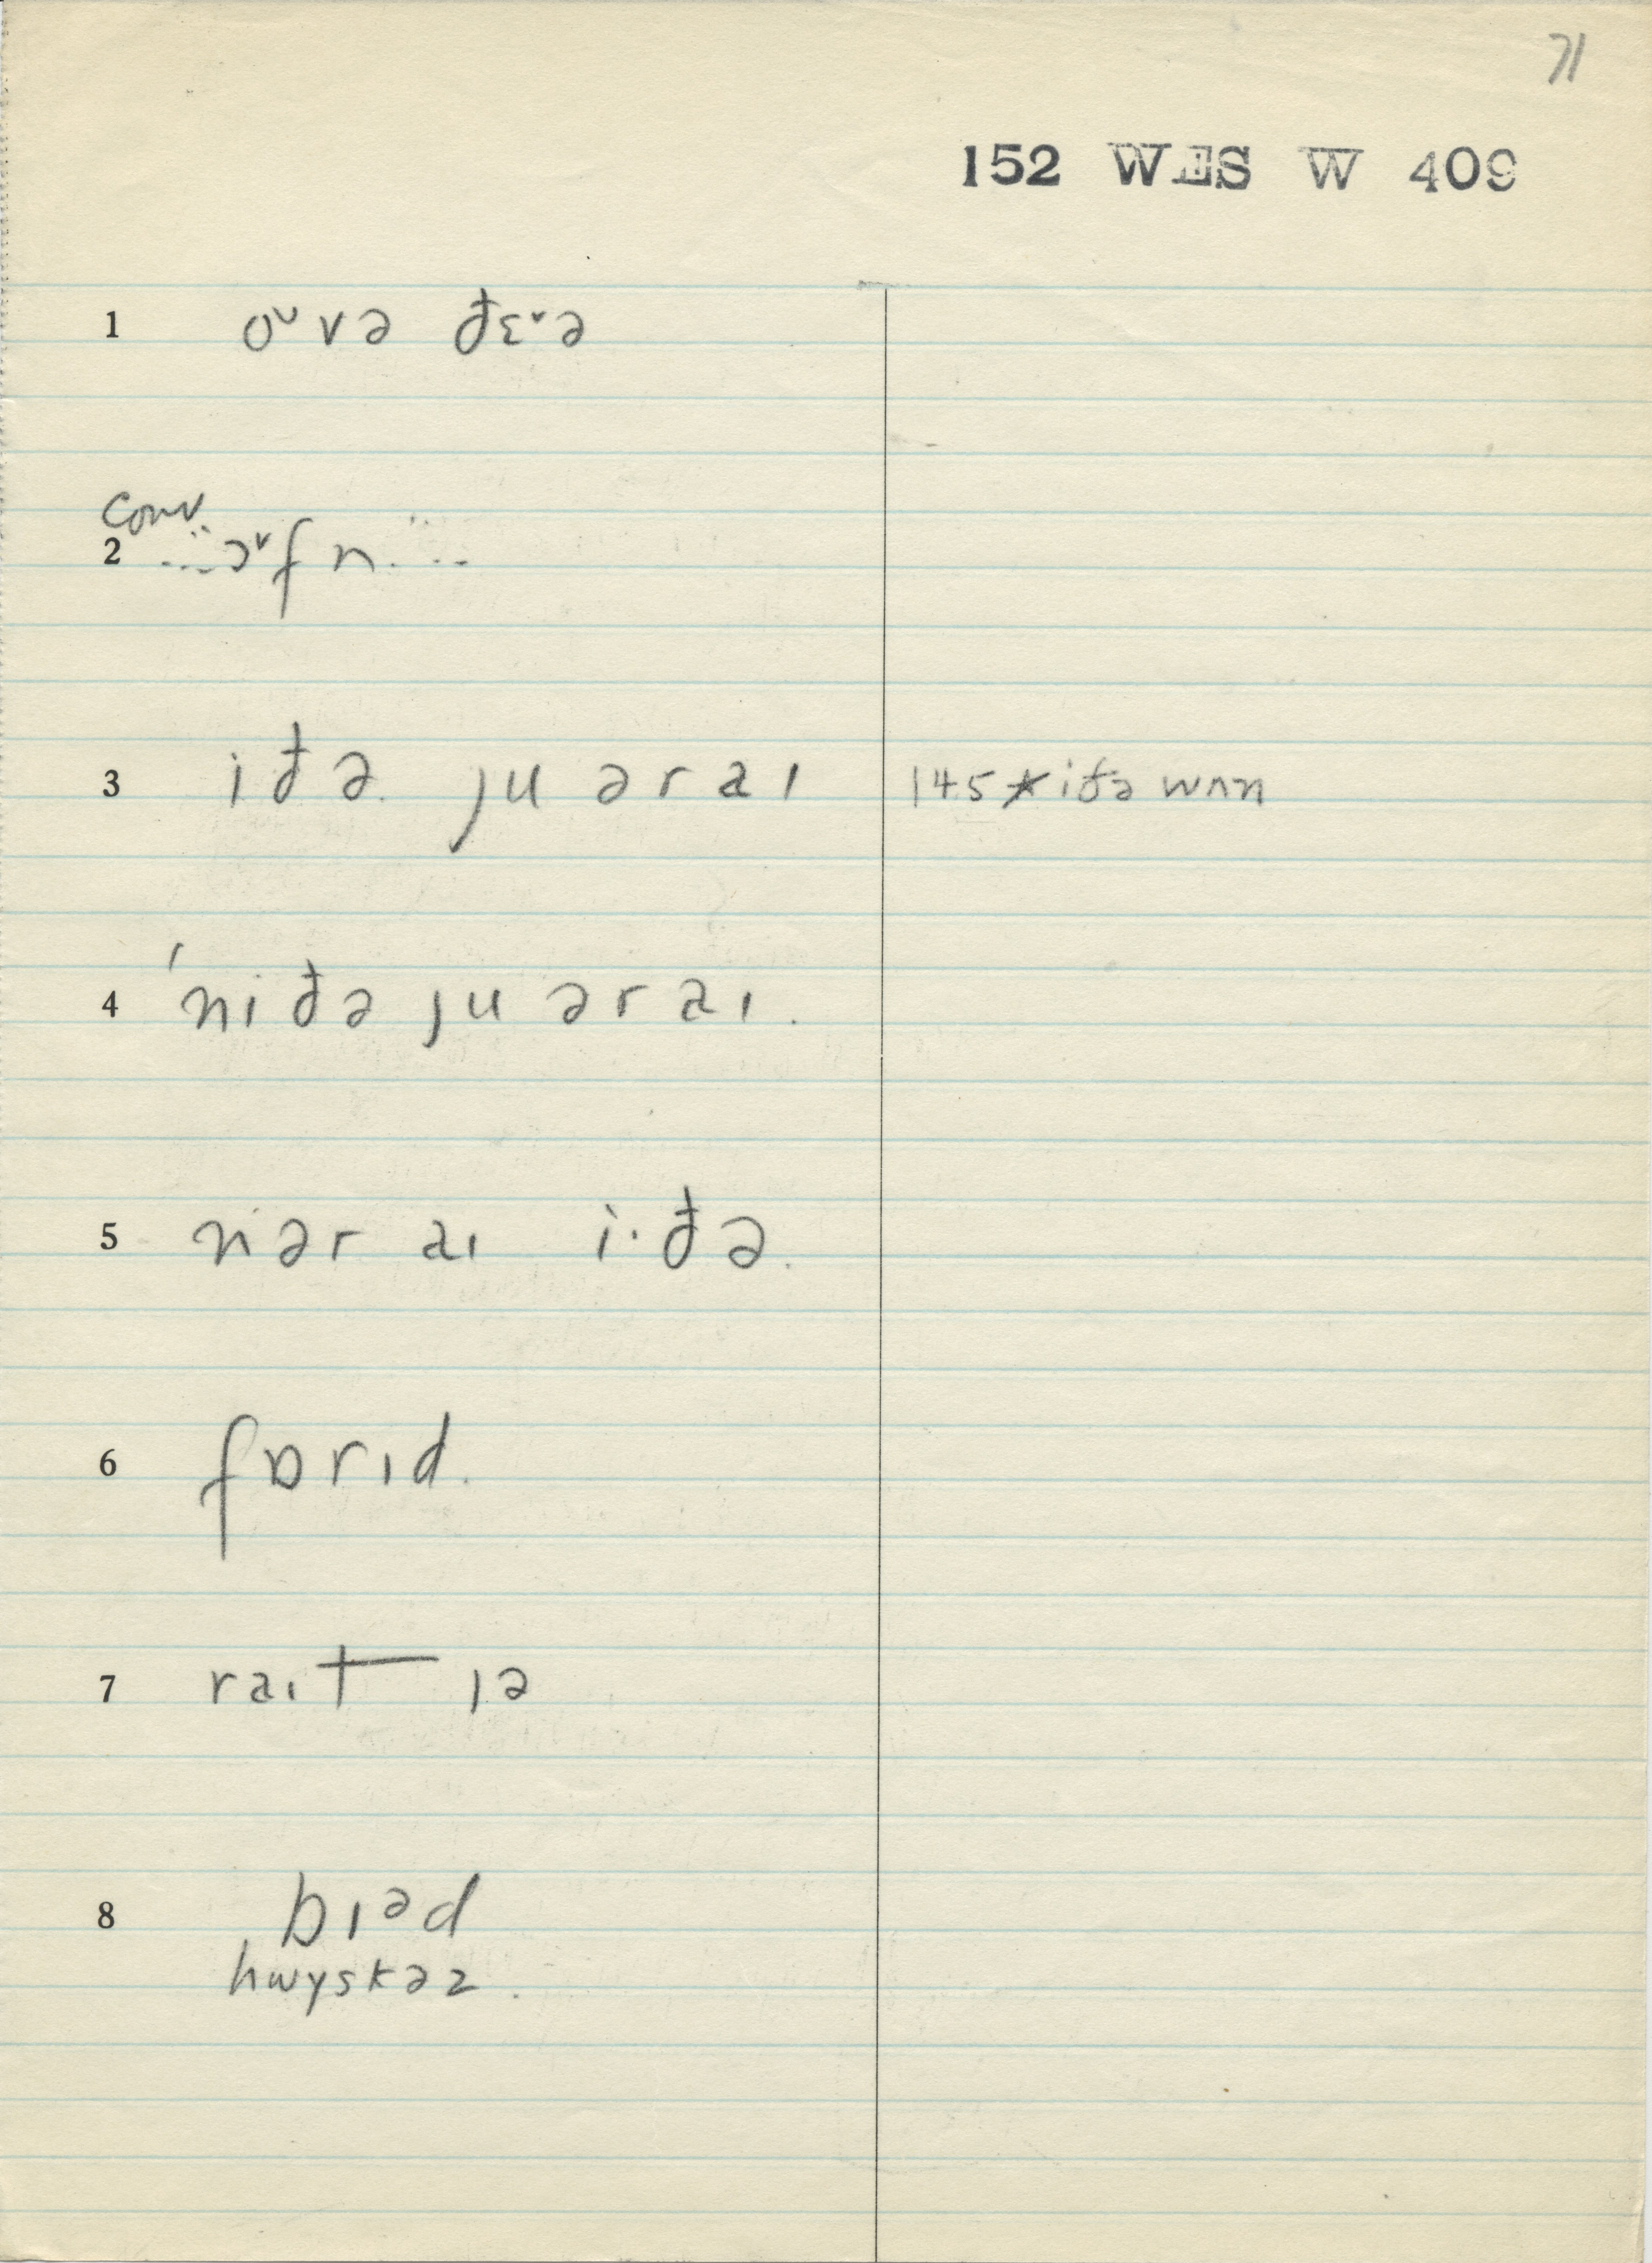 71
152 WES W 409
1 oᵛvə ðɛᵛə
conv
2 ...ɔᵛfn...
3 iðə. ju əraɪ 145 * iðə wʌn
4 'niðə ju əraɪ.
5 nər aɪ i·ðə.
6 fɒrɪd.
7 raɪt ɪə
8 bɪᵊd
hwyskəz.